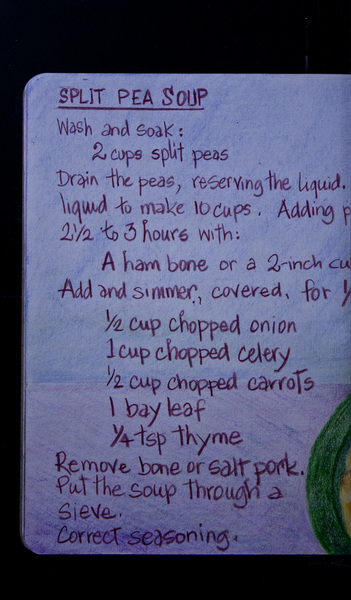 SPLIT PEA SOUP
Wash and soak:
2 cups split peas
Drain the peas, reserving the liquid.
liquid to make 10 cups. Adding
2 1/2 to 3 hours with:
A ham bone or a 2-inch
Add and simmer, covered, for
1/2 cup chopped onion
1 cup chopped celery
1/2 cup chopped carrots
1 bay leaf
1/4 tsp thyme
Remove bone or salt pork.
Put the soup through a
sieve.
Correct seasoning.